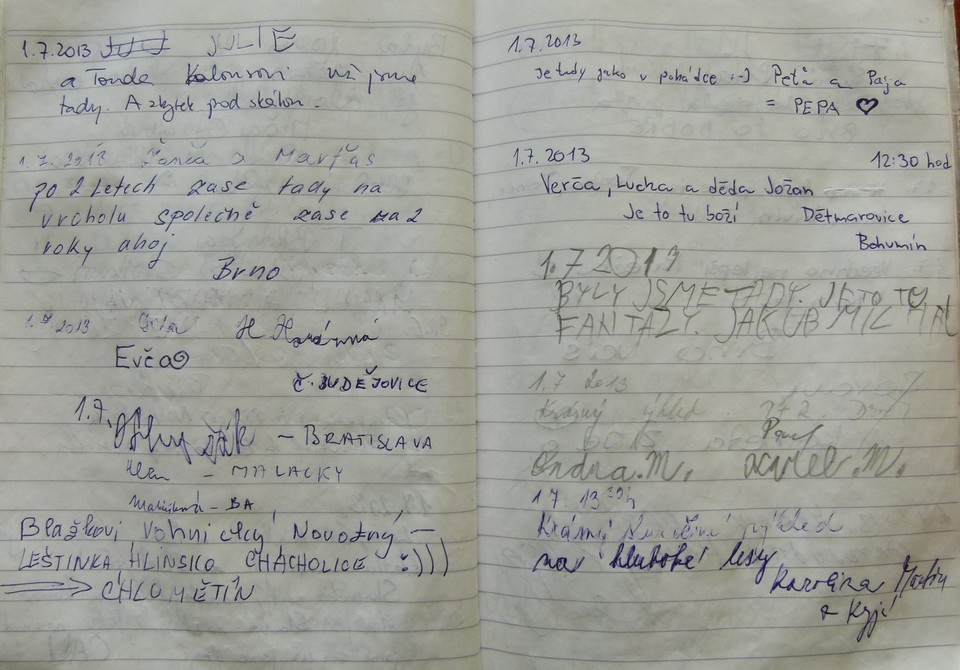 1.7.2013 JULIE
a Tonda Kalousovi už jsme
tady. A zbytek pod skálou.
1.7. 2013 Žanča a Marťas
po 2 letech zase tady na
vrcholu společně zase na 2
roky ahoj
Brno
1.7 2013
Evča
Č. BUDĚJOVICE
1.7.
– BRATISLAVA
– MALACKY
– BA
Blažkovi, Vohnický, Novotný –
LEŠTINKA, HLINSKO CHACHOLICE :)))
CHLUMĚTÍN
1.7.2013
Je tady jako v pohádce :-) Peťa a Pája
= PEPA ♡
1.7. 2013 12:30 hod
Verča, Lucka a děda Jožan
Je to tu boží Dětmarovice
Bohumín
1.7 2013
BYLY JSME TADY. JE TO TU
FANTAZY. JAKUB MIL
1.7 2013
Krásný výhled
Pavel
Ondra.M. .M.
1.7. 13
Krásný výhled
na hluboké lesy
Karolína Martin
a Kyjí